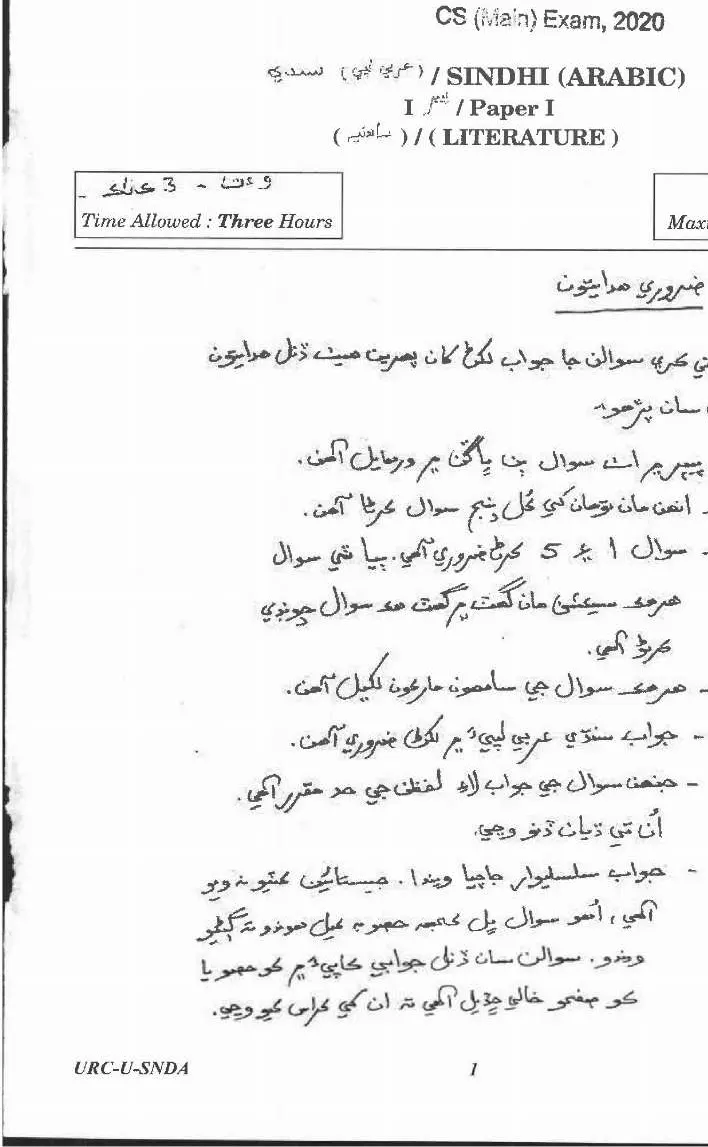 CS (Main) Exam, 2020
سنڌي (عربي لپي) / SINDHI (ARABIC)
I پيپر / Paper I
(ساهتيه) / ( LITERATURE )
وقت - 3 ڪلاڪ
Time Allowed : Three Hours
Maxi
ضروري هدايتون
ڪري سوالن جا جواب لکڻ کان پهرين هيٺ ڏنل هدايتون
سان پڙهو
پيپر ۾ اٺ سوال ٻن ڀاڱن ۾ ورهايل آهن.
انهن مان توهان کي ڪُل پنج سوال ڪرڻا آهن.
- سوال 1 ۽ 5 ڪرڻ ضروري آهي. ٻيا ٽي سوال
هرهڪ سيڪشن مان گهٽ ۾ گهٽ هڪ سوال چونڊي
ڪرڻو آهي.
- هرهڪ سوال جي سامهون مارڪون لکيل آهن.
- جواب سنڌي عربي لپيءَ ۾ لکڻ ضروري آهن.
- جنهن سوال جي جواب لاءِ لفظن جي حد مقرر آهي.
اُن تي ڌيان ڏنو وڃي.
- جواب سلسليوار جاچيا ويندا. جيستائين ڪٽيو نه ويو
آهي، اهو سوال ڀل ڪجهه حصو ئي ڪيل هوندو ته ڳڻيو
ويندو. سوالن سان ڏنل جوابي ڪاپيءَ ۾ ڪو حصو يا
ڪو صفحو خالي ڇڏيل آهي ته ان کي ڪراس ڪيو وڃي.
URC-U-SNDA
1